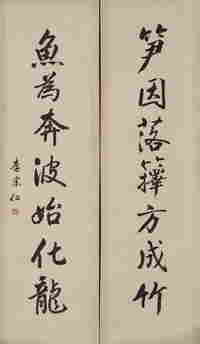 笋因落籜方成竹
魚為奔波始化龍
李宗仁